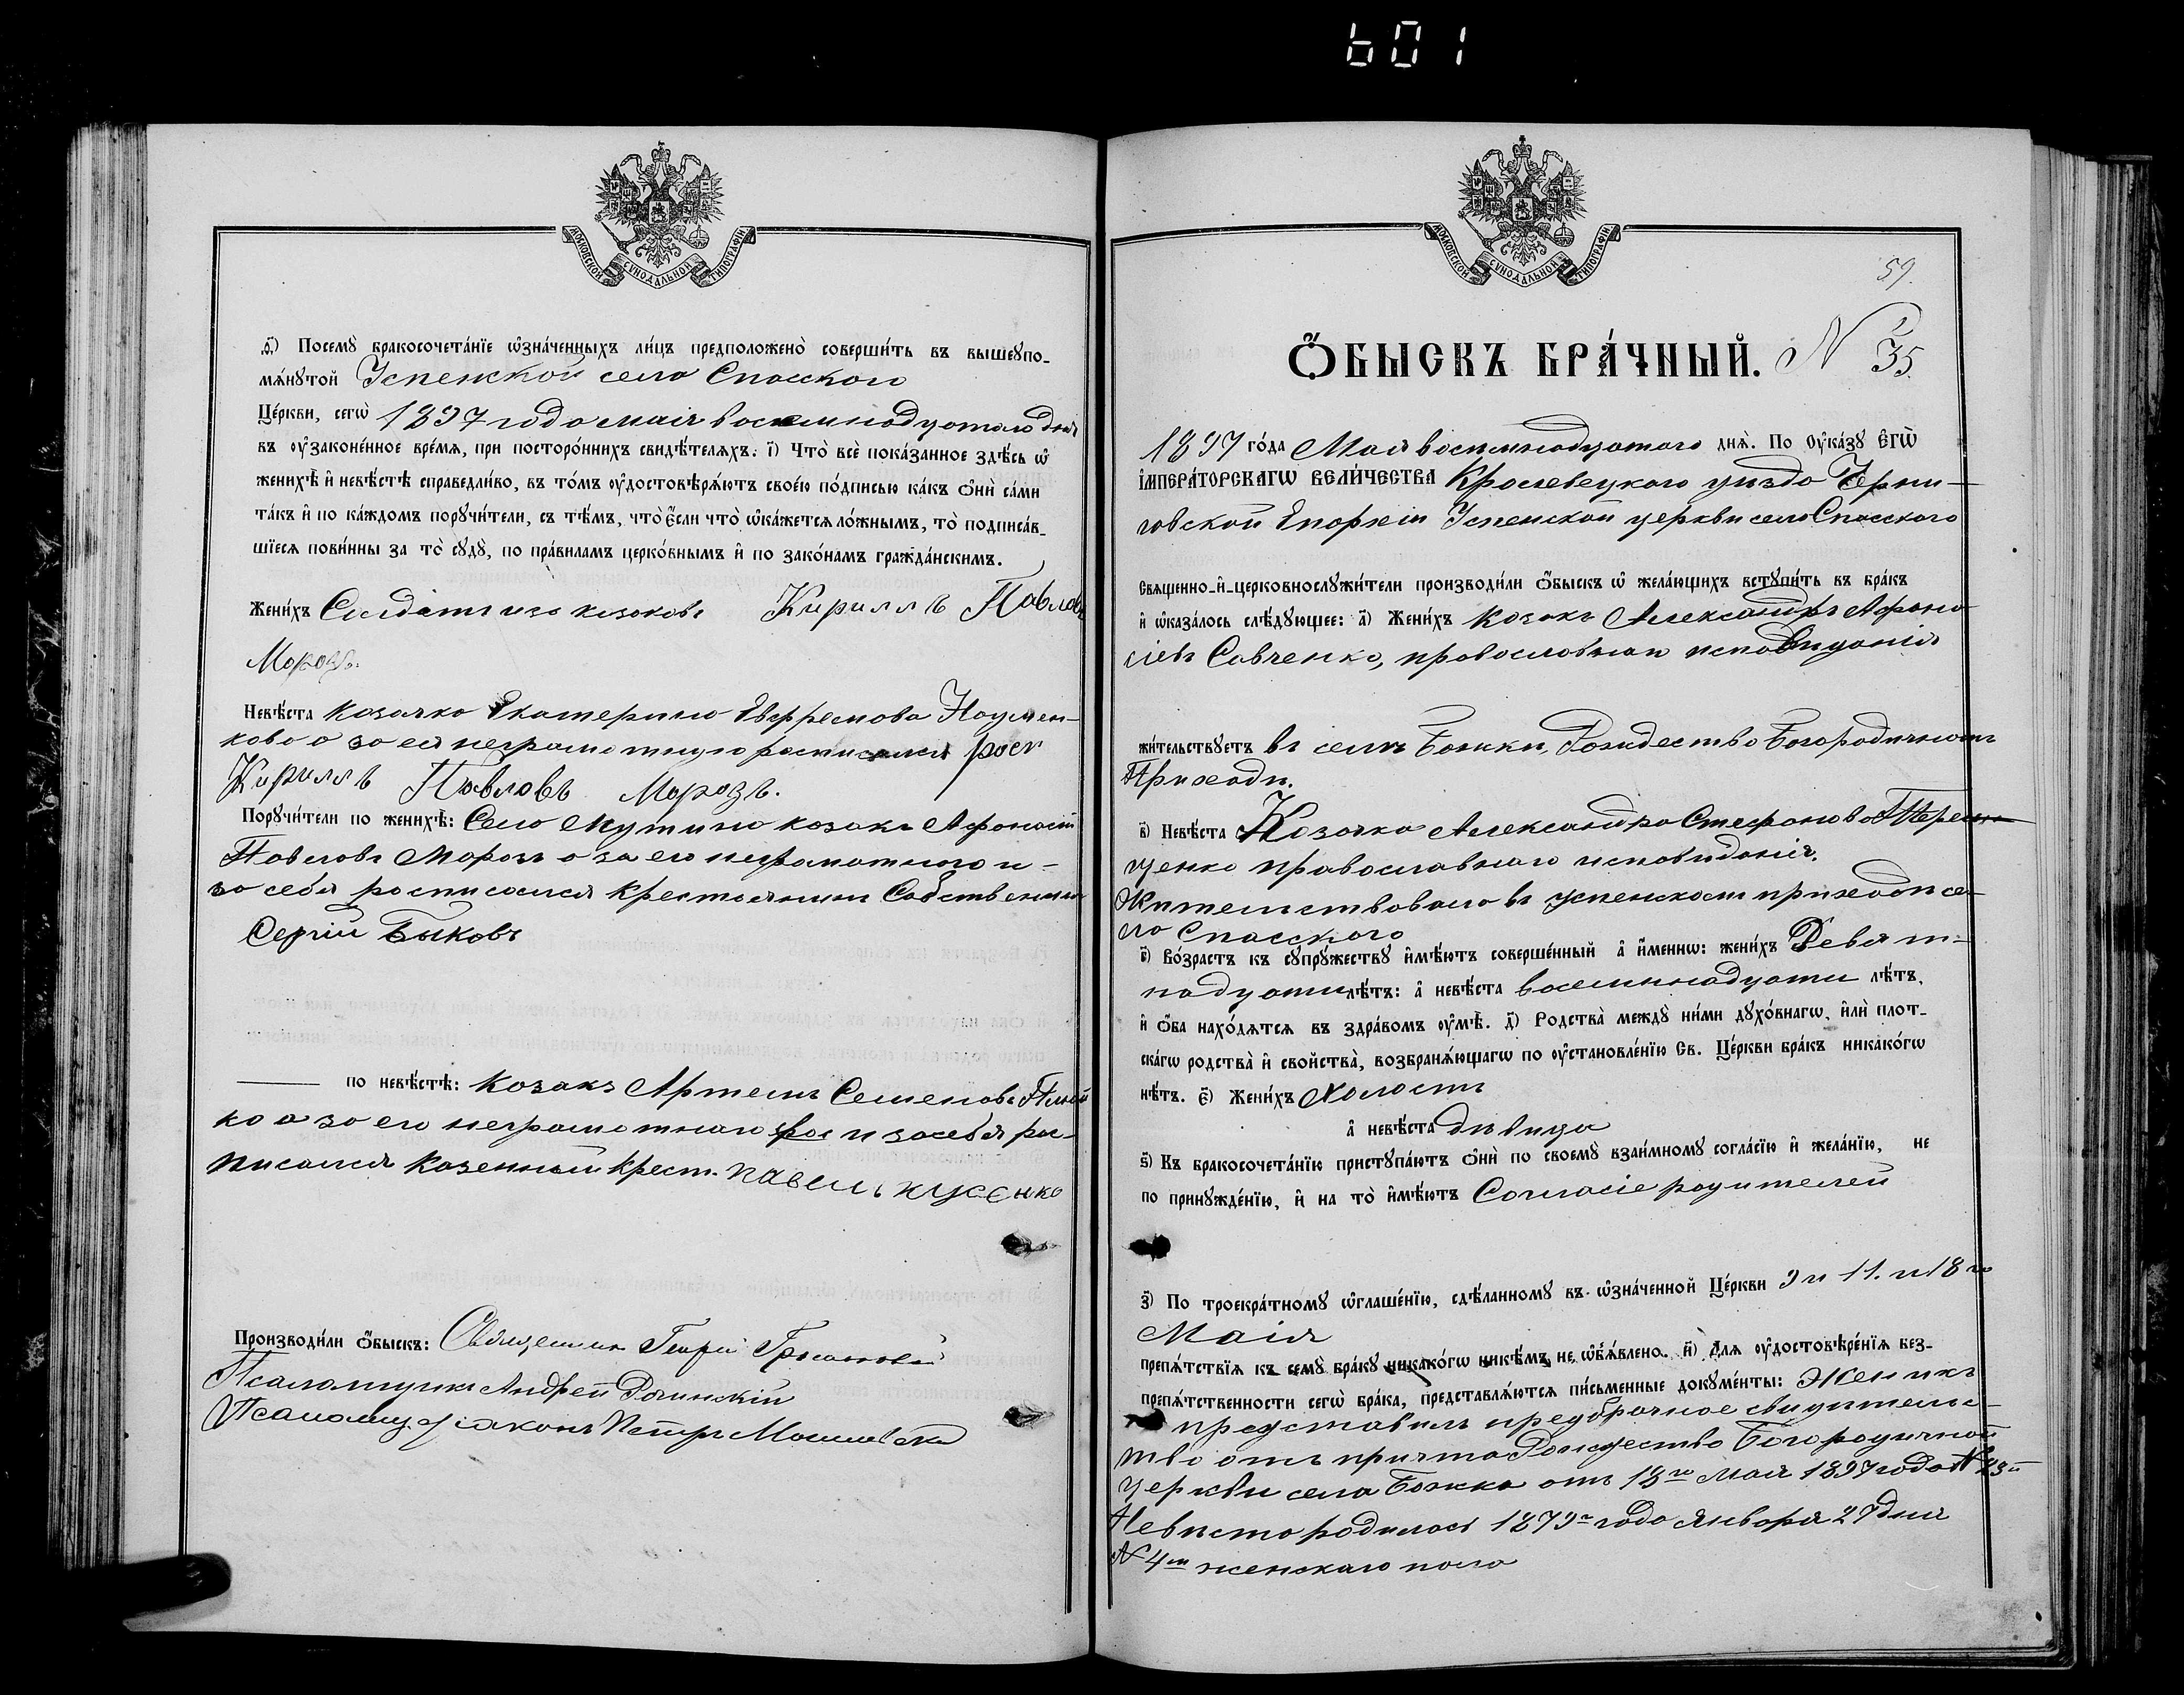 601
МОСКОВСКОЙ СѴНОДАЛЬНОЙ ТИПОГРАФІИ
ѳ҃) Посемꙋ бракосочета́нїе ѡ҆зна́ченныхъ ли́цъ предположено̀ соверши́ть въ вышеꙋпо-
мѧ́нꙋтой Успенской села Спасскаго
Це́ркви, сегѡ̀ 1897 года маія восемнадцатаго дня
въ ᲂу҆законе́нное вре́мѧ, при посторо́ннихъ свидѣ́телѧхъ. і҃) Что̀ всѐ пока́занное здѣ́сь ѡ҆
женихѣ̀ и҆ невѣ́стѣ справедли́во, въ то́мъ ᲂу҆достовѣрѧ́ютъ свое́ю по́дписью ка́къ ѻ҆нѝ са́ми
та́къ и҆ по ка́ждомъ порꙋчи́тели, съ тѣ́мъ, что̀ є҆́сли что̀ ѡ҆ка́жетсѧ ло́жнымъ, то̀ подписа́в-
шїесѧ пови́нны за то̀ сꙋдꙋ̀, по пра́виламъ церко́внымъ и҆ по зако́намъ гражда́нскимъ.
Жени́хъ Солдатъ изъ козаковъ Кириллъ Павловъ
Морозъ.
Невѣ́ста козачка Екатерина Евфремова Наумен-
кова а за ея неграмотную росписался росп
Кириллъ Павловъ Морозъ.
Порꙋчи́тели по женихѣ̀: Села Мутина козакъ Афанасій
Павловъ Морозъ а за его неграмотнаго и
за себя росписался крестьянинъ Собственникъ
Сергій Быковъ
по невѣ́стѣ: Козакъ Артемъ Семеновъ
ко а за его неграмотнаго рос и за себя рос-
писался казенный крест. Павелъ Кусенко
Производи́ли ѻ҆́быскъ: Священникъ
Псаломщикъ Андрей
Псаломщ. діаконъ Петръ
МОСКОВСКОЙ СѴНОДАЛЬНОЙ ТИПОГРАФІИ
59.
Ѻ҆́БЫСКЪ БРА́ЧНЫЙ. N 35.
1897 го́да Мая восемнадцатаго днѧ̀. По ᲂу҆ка́зꙋ Є҆ГѠ̀
І҆МПЕРА́ТОРСКАГѠ ВЕЛИ́ЧЕСТВА Кролевецкаго уѣзда Черни-
говской Епархіи Успенской церкви села Спасского
Свѧще́нно-и҆-церковнослꙋжи́тели производи́ли ѻ҆́быскъ ѡ҆ жела́ющихъ встꙋпи́ть въ бра́къ
и҆ ѡ҆каза́лось слѣ́дꙋющее: а҃) Жени́хъ козакъ Александръ Афана-
сіевъ Савченко, православнаго исповѣданія
жи́тельствꙋетъ въ селѣ Божки, Рождество Богородичномъ
Приходѣ.
в҃) Невѣ́ста Козачка Александра Стефанова
ценко православнаго исповѣданія.
Жительствовала въ успенскомъ приходѣ се-
ла Спасского
г҃) Во́зрастъ къ сꙋпрꙋ́жествꙋ и҆мѣ́ютъ соверше́нный а҆ и҆́меннѡ: жени́хъ Девят-
надцати лѣ́тъ: а҆ невѣ́ста восемнадцати лѣ́тъ,
и҆ ѻ҆́ба нахо́дѧтсѧ въ здра́вомъ ᲂу҆мѣ̀. д҃) Родства̀ междꙋ̀ ни́ми дꙋхо́внагѡ, и҆лѝ плот-
ска́гѡ родства̀ и҆ сво́йства̀, возбранѧ́ющагѡ по ᲂу҆становле́нїю Св. Це́ркви бра́къ никако́гѡ
нѣ́тъ. є҃) Жени́хъ Холостъ
а҆ невѣ́ста дѣвица
ѕ҃) Къ бракосочета́нїю пристꙋпа́ютъ ѻ҆нѝ по своемꙋ̀ взаи́мномꙋ согла́сїю и҆ жела́нїю, не
по принꙋжде́нїю, и҆ на то̀ и҆мѣ́ютъ Согласіе родителей
з҃) По троекра́тномꙋ ѡ҆глаше́нїю, сдѣ́ланномꙋ въ ѡ҆зна́ченной Це́ркви 9 и 11. и 18 го
Маія
препѧ́тствїѧ къ семꙋ̀ бра́кꙋ никако́гѡ никѣ́мъ не ѡ҆б̾ѧ́влено. и҃) Длѧ ᲂу҆достовѣре́нїѧ без-
препѧ́тственности сегѡ̀ бра́ка, представлѧ́ютсѧ пи́сьменные докꙋме́нты: Женихъ
представилъ предбрачное свидѣтельс-
тво отъ причта Рождество Богородичной
церкви села Божка отъ 18го Мая 1897 года N 23й
Невѣста родилась 1879го года Января 29 дня
N 4мъ женскаго пола